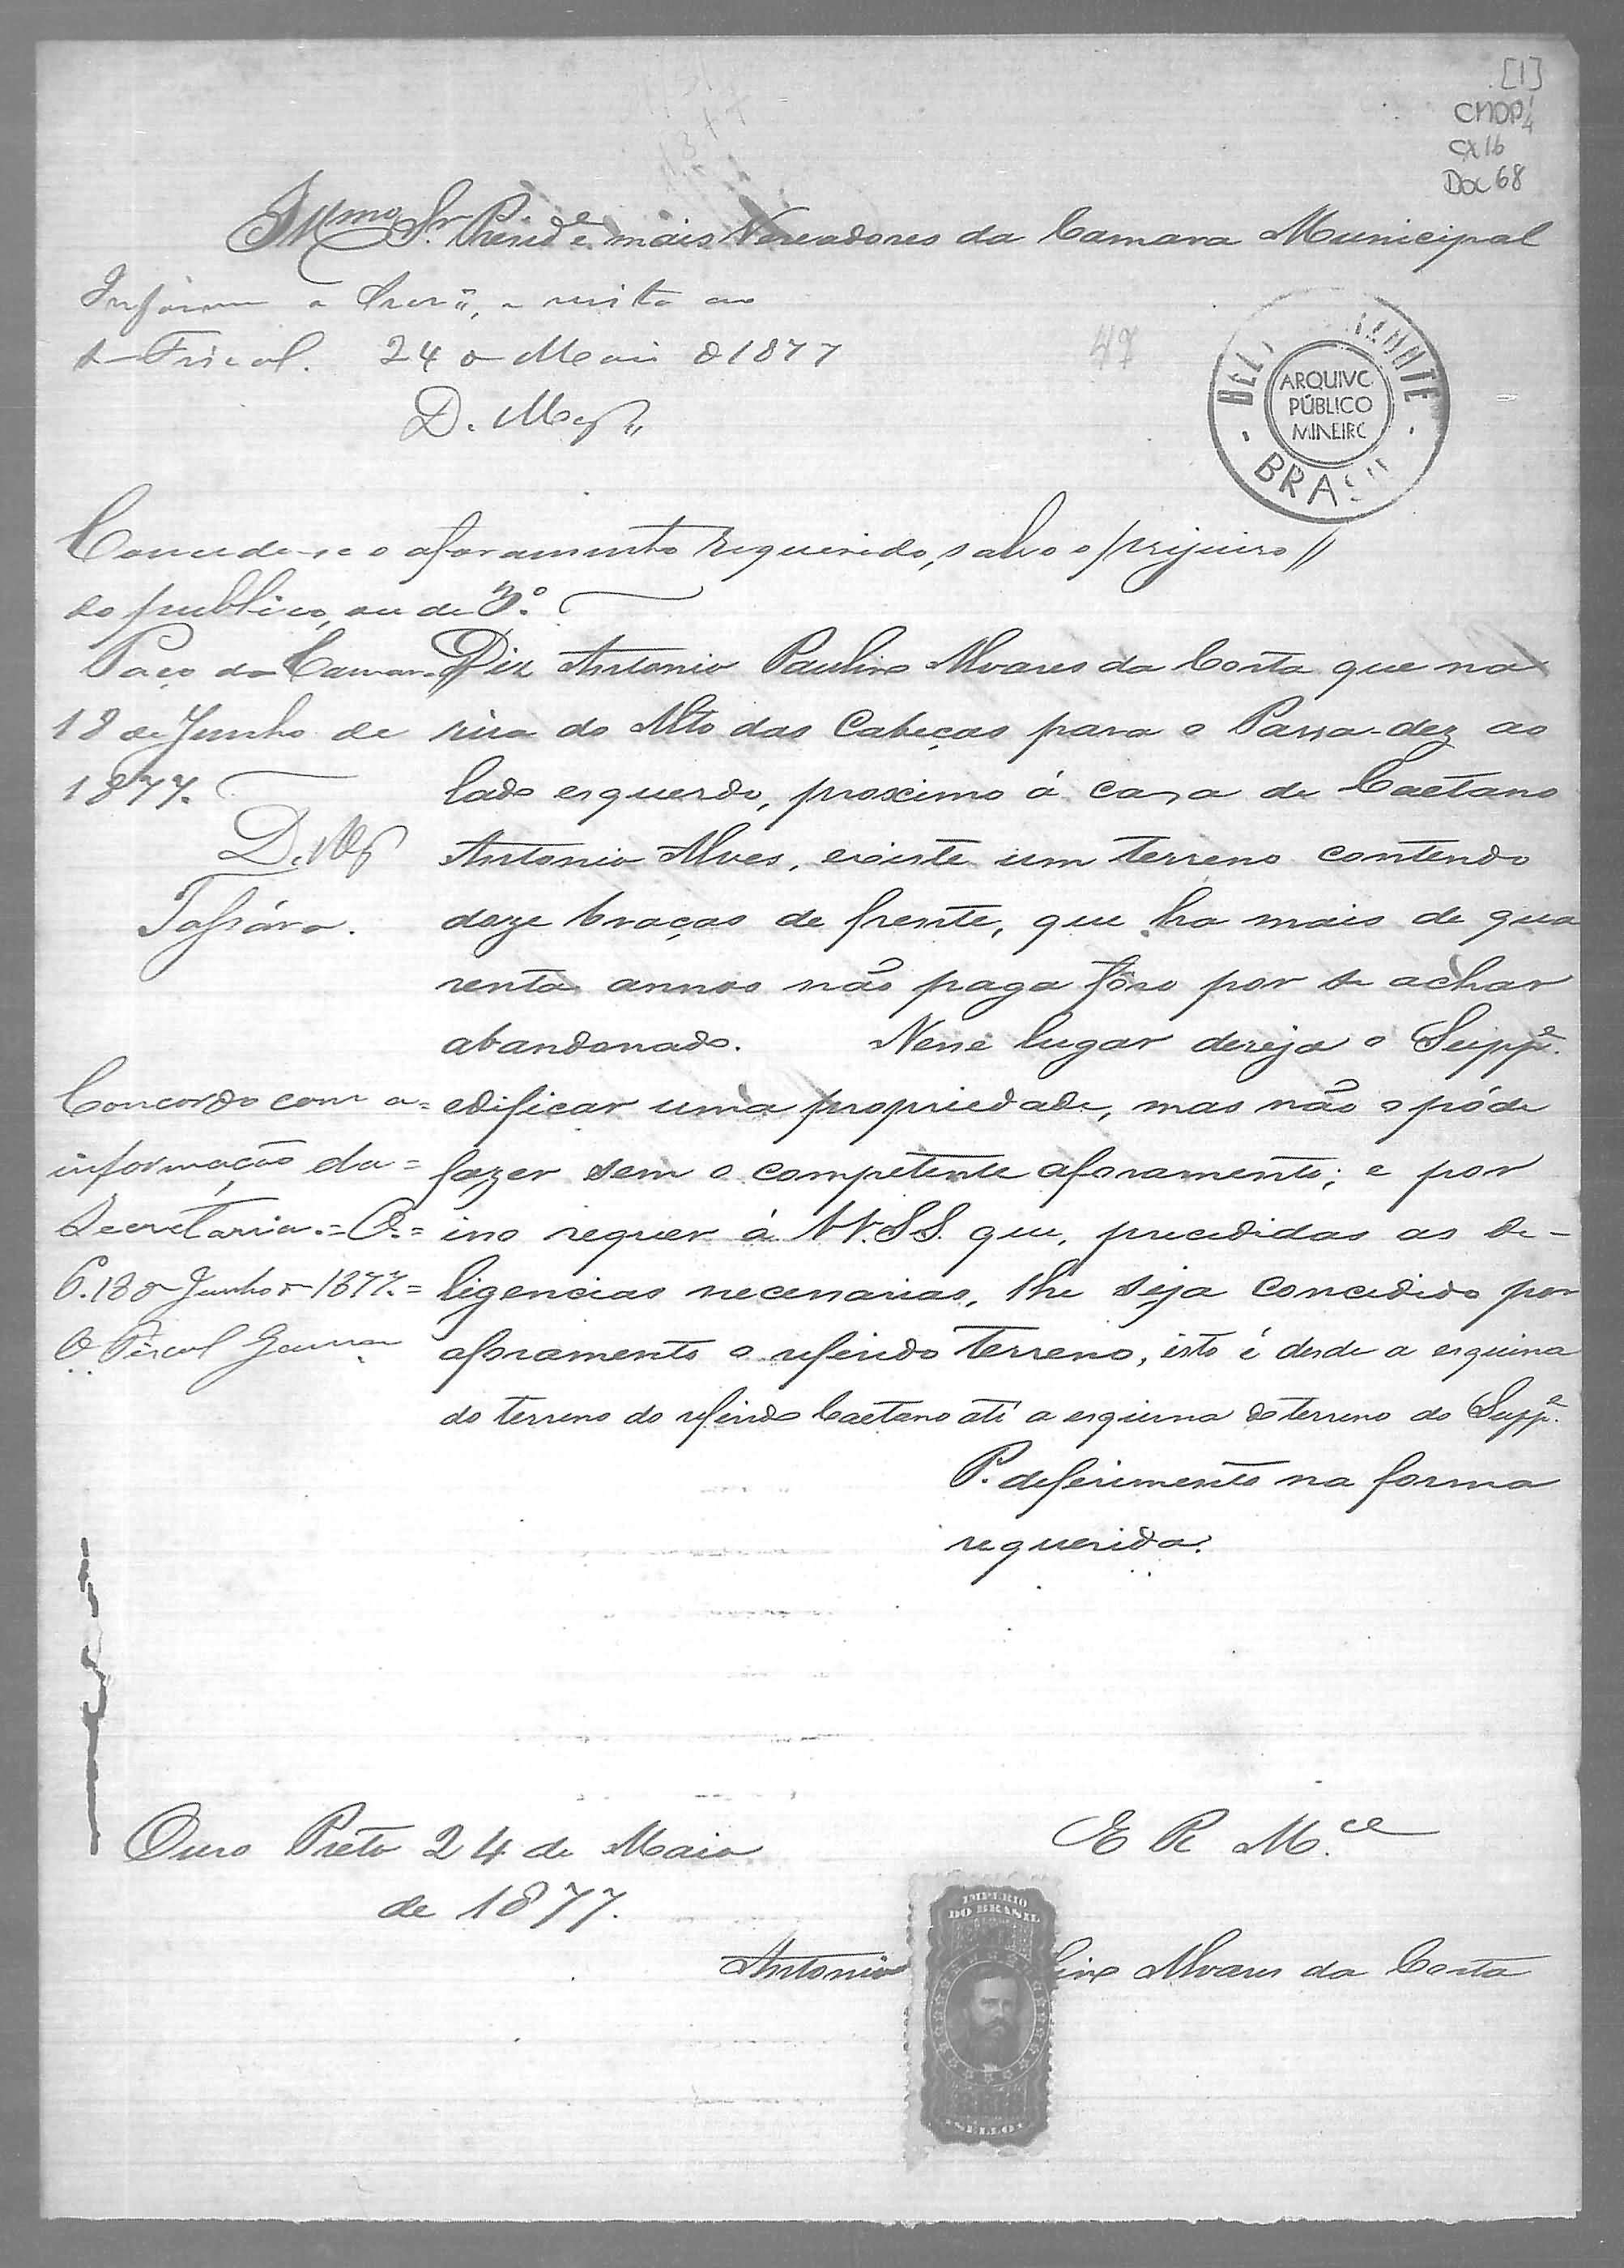 [1]
CMOP 1/4
CX 16
Doc 68
Illmo Sr. Presid.e e mais Vereadores da Camara Municipal
Informe a Secr.ª, e
o Fiscal. 24 de Maio de 1877
47
BELO HORIZONTE
ARQUIVO
PÚBLICO
MINEIRO
BRASIL
Concede-se o aforamento requerido, salvo o prejuiso
do publico, ou de 3.º
Paço da Camara
18 de Junho de
1877.
Diz Antonio Paulino Alvares da Costa que na
rua do Alto das Cabeças para o Passa-dez ao
lado esquerdo, proximo á casa de Caetano
Antonio Alves, existe um terreno contendo
doze braças de frente, que ha mais de qua
renta annos não paga fôro por se achar
abandonado. Nesse lugar deseja o Supp.e
edificar uma propriedade, mas não o póde
fazer sem o competente aforamento; e por
isso requer á VV.SS. que, precedidas as de-
ligencias necessarias, lhe seja concedido por
aforamento o referido terreno, isto é desde a esquina
do terreno do referido Caetano até a esquina do terreno do Supp.e
Concordo com a=
informação da=
Secretaria.=O.=
P. 18 de Junho de 1877.=
O Fiscal
P. deferimento na forma
requerida.
Ouro Preto 24 de Maio
de 1877.
E R M.ce
IMPERIO
DO BRASIL
SELLO
Antonio lino Alvares da Costa